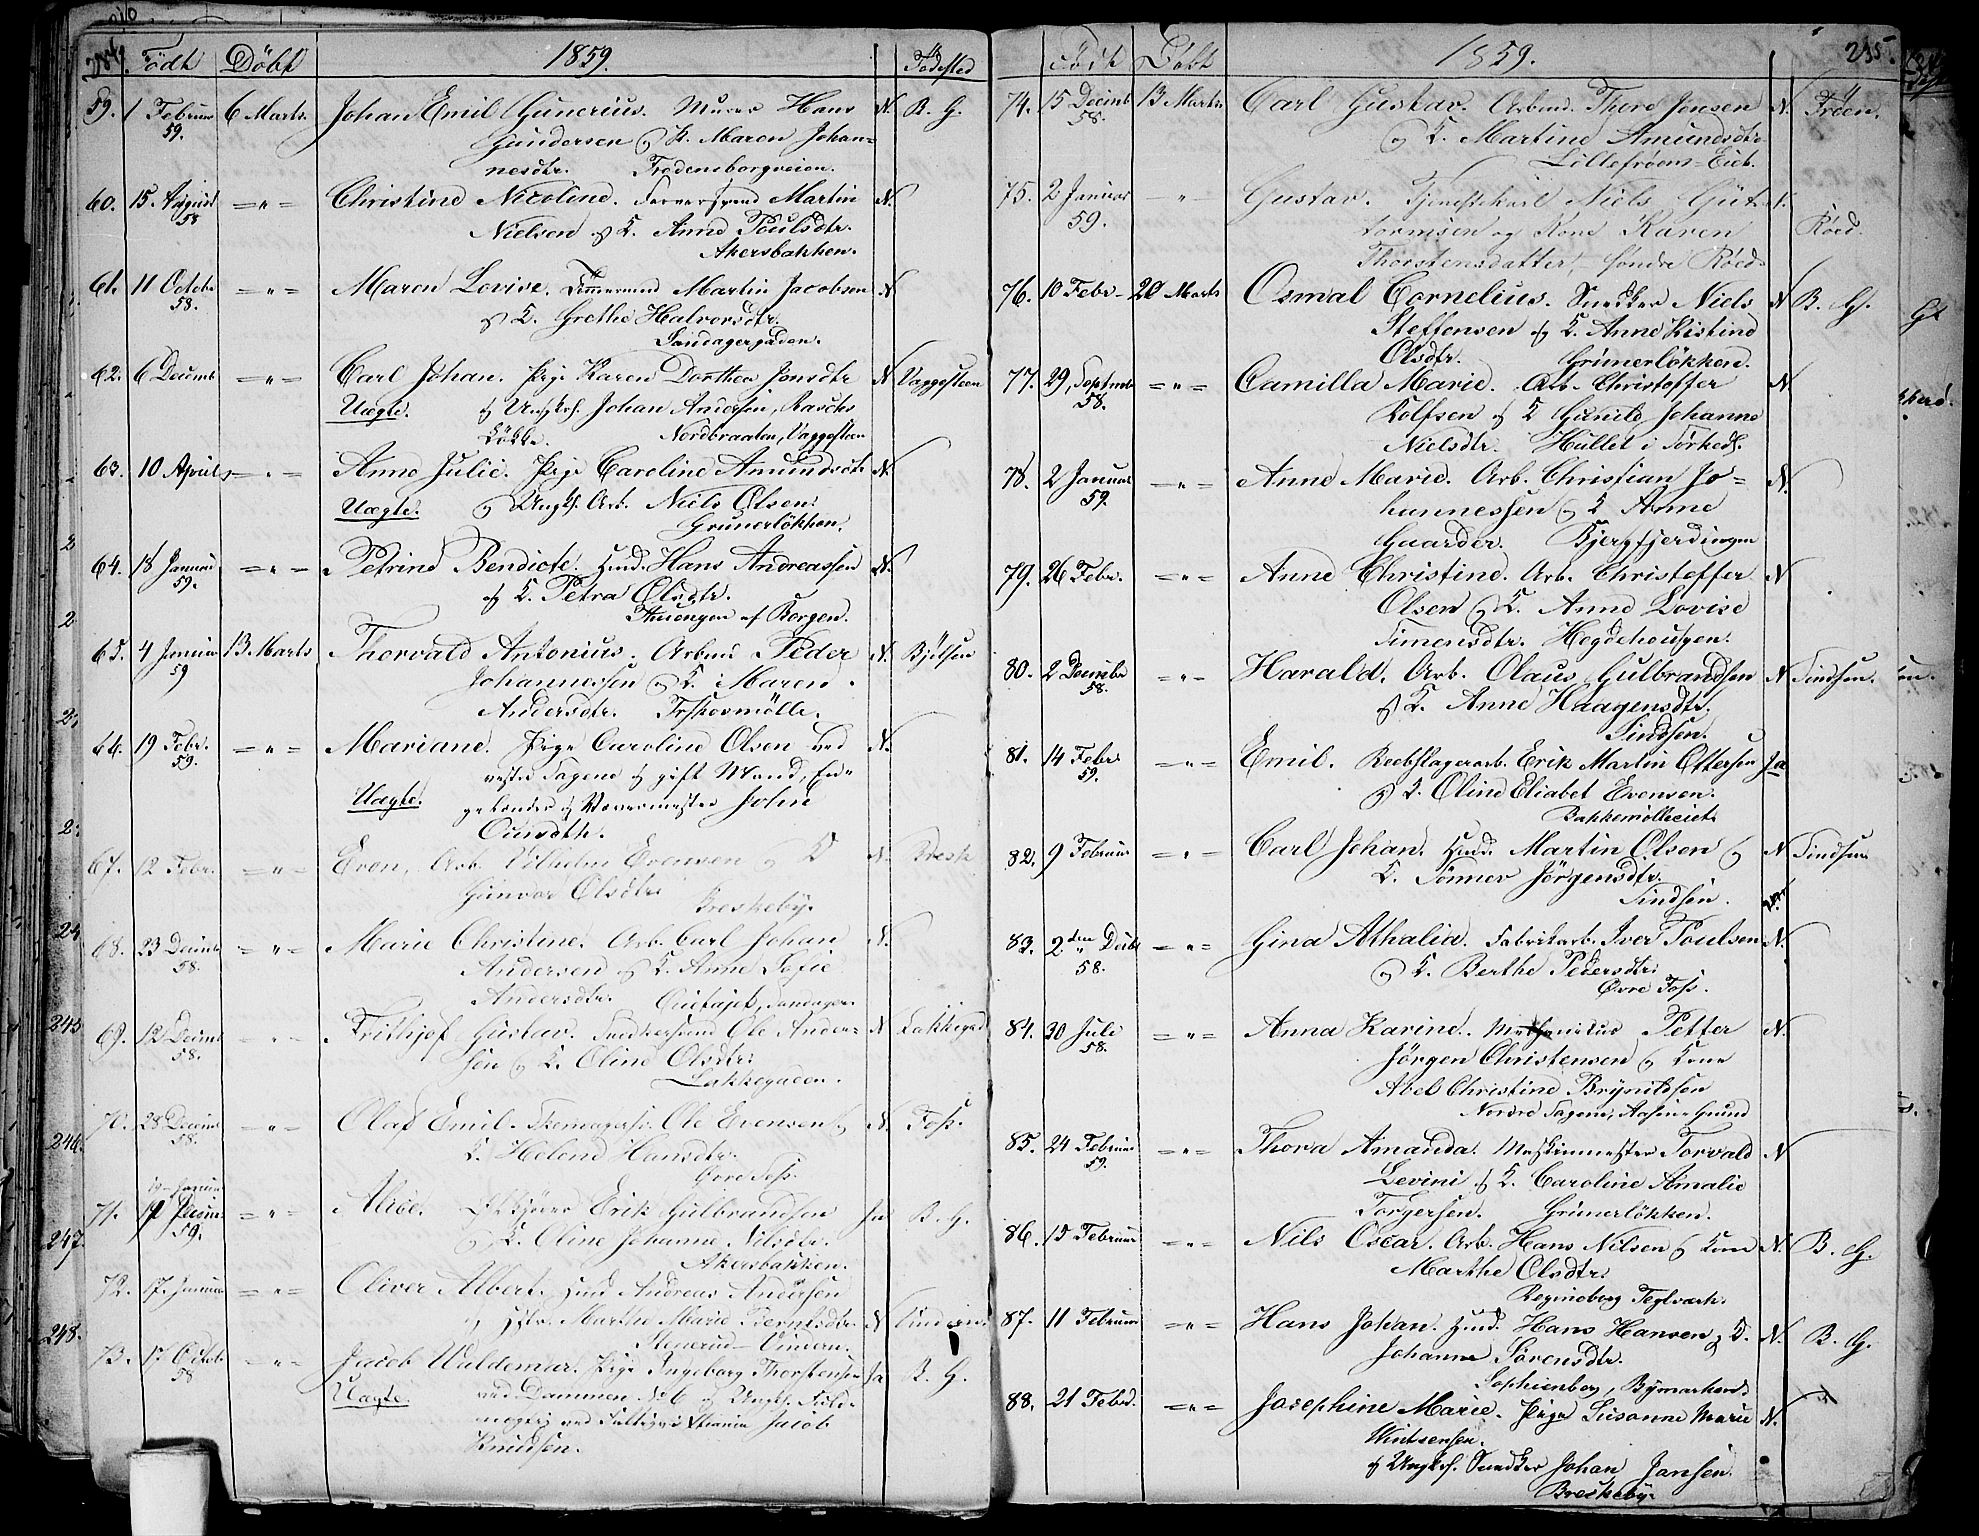 234. Födt Döbt 1859. Födested
59. 1 Februar 59. 6 Marts. Johan Emil Gunerius. Murer Hans N. B. G.
Gundersen og K. Maren Johan=
nesdtr. Fredensborgveien.
60. 15 August 58 — " — Christine Nicoline. Farversvend Martin N.
Nielsen og K. Anne Poulsdtr.
Akersbakken.
61. 11 Octobr 58. — " — Maren Lovise. Tömmermand Martin Jacobsen N
og K. Grethe Halvorsdtr.
Sandagergaden.
62. 6 Decemb — " — Carl Johan. Pige Karen Dorthea Jonsdtr N Vaggesteen
Uægte. og Ungk. Johan Andersen, Raschs
Lökke. Nordbraaten, Vaggesteen
63. 10 April — " — Anne Julie. Pige Caroline Amundsdtr N.
Uægte. og Ungk. Arb. Niels Olsen.
Grunerlökken.
64. 18 Januar 59. — " — Petrine Bendicte. Huusm. Hans Andreassen N.
og K. Petra Olsdtr.
af Borgen.
65. 4 Januar 59 13 Marts Thorvald Antonius. Arbmd Peder N. Bjölsen
Johannessen og K. Maren
Andersdtr.
66. 19 Febr. 59. — " — Mariane. Pige Caroline Olsen ved N.
vestre Sagene og gift Mand, En=
Uægte. gelænder og Vævermester John

67. 12 Febr. — " — Even, Arb. Vilhelm Evensen og K N. Bresk
Gunvor Olsdtr.
Breskeby.
68. 23 Decemb 58. — " — Marie Christine. Arb. Carl Johan N.
Andersen og K. Anne Sofie
Andersdtr. Sandager.
69. 12 Decemb 58. — " — Frithjof Gustav. Snedkersvend Ole Ander= N Lakkegad
sen og K. Oline Olsdtr.
Lakkegaden.
70. 28 Decemb 58. — " — Olaf Emil. Ole Evensen og N. Foss.
K. Helene Hansdtr.
Övre Foss.
71. 19 Januar 59. — " — Alice. Erik Gulbrandsen Ja B. G.
og K. Oline Johanne Nilsdtr.
Akersbakken.
72. 17. Januar — " — Oliver Albert. Huusmd Andreas Andersen
og Hstr. Marthe Marie Berntsdtr. N Vinderen.
Stenerud Vindern.
73. 17 Octob 58 — " — Jacob Valdemar. Pige Ingeborg Thorstensen Ja B. G.
Uægte. ved Dammen No 6 og Ungk. Fuld=
mægtig ved Jacob
Knudsen.
Födt Döbt 1859. 235.
74. 15 Decemb 58. 13 Marts Carl Gustav. Arbmd. Thore Jensen N. Fröen.
og K. Martine Amundsdtr.
Lillefröens Eiet.
75. 2 Januar 59. — " — Gustav. Tjenestekarl Niels Gut= N.
tormsen og Kone Karen Röed.
Thorstensdatter, söndre Röed.
76. 10 Febr — 20 Marts Osmal Cornelius. Snedker Niels N B. G.
Steffensen og K. Anne Kistine
Olsdtr. Grünerlökken.
77. 29, Septmbr 58. — " — Camilla Marie. Arb. Christoffer N.
Rolfsen og K Gunild Johanne
Nielsdtr. Hullet i
78. 2 Januar 59. — " — Anne Marie. Arb. Christian Jo= N.
hannessen og K Anne
Gaarder. Bjergfjerdingen
79. 26 Febr. — " — Anne Christine. Arb. Christoffer N
Olsen og K. Anne Lovise
Simensdtr. Hegdehougen.
80. 2 Decembr 58. — " — Harald. Arb. Olaus Gulbrandsen N Sindsen.
og K. Anne Haagensdtr.
Sindsen.
81. 14 Febr. 59. — " — Emil. Reebslagerarb. Erik Martin Ottersen Ja
og K. Oline Eliabet Evensen.
Bakkemölleeiet.
82. 9 Februar — " — Carl Johan. Huusmd. Martin Olsen og N Sindsen
K. Tönner Jörgensdtr.
Sindsen.
83. 2den Decb 58. — " — Gina Athalia. Fabrikarb. Iver Poulsen N.
og K. Berthe Pedersdtr.
Övre Foss.
84. 20 Juli 58. — " — Anna Karine. Petter N.
Jörgen Christensen og Kone
Abel Christine Brynildsen
Nordre Sagene, Aasens Grund
85. 24 Februar 59. — " — Thora Amanda. Maskinmester Torvald N
Levini og K. Caroline Amalie
Torgersen. Grünerlökken.
86. 15 Februar — " — Nils Oscar. Arb. Hans Nilsen og Kone N. B. G.
Marthe Olsdtr.
Regineborg Teglværk.
87. 11 Februar — " — Hans Johan. Huusmd. Hans Hansen og K. N. B. G.
Johanne Sörensdtr.
Sophienberg, Bymarken.
88. 21 Febr. — " — Josephine Marie. Pige Susanne Marie N.
Wintsensen.
og Ungk. Snedker Johan Jansen
Breskeby.